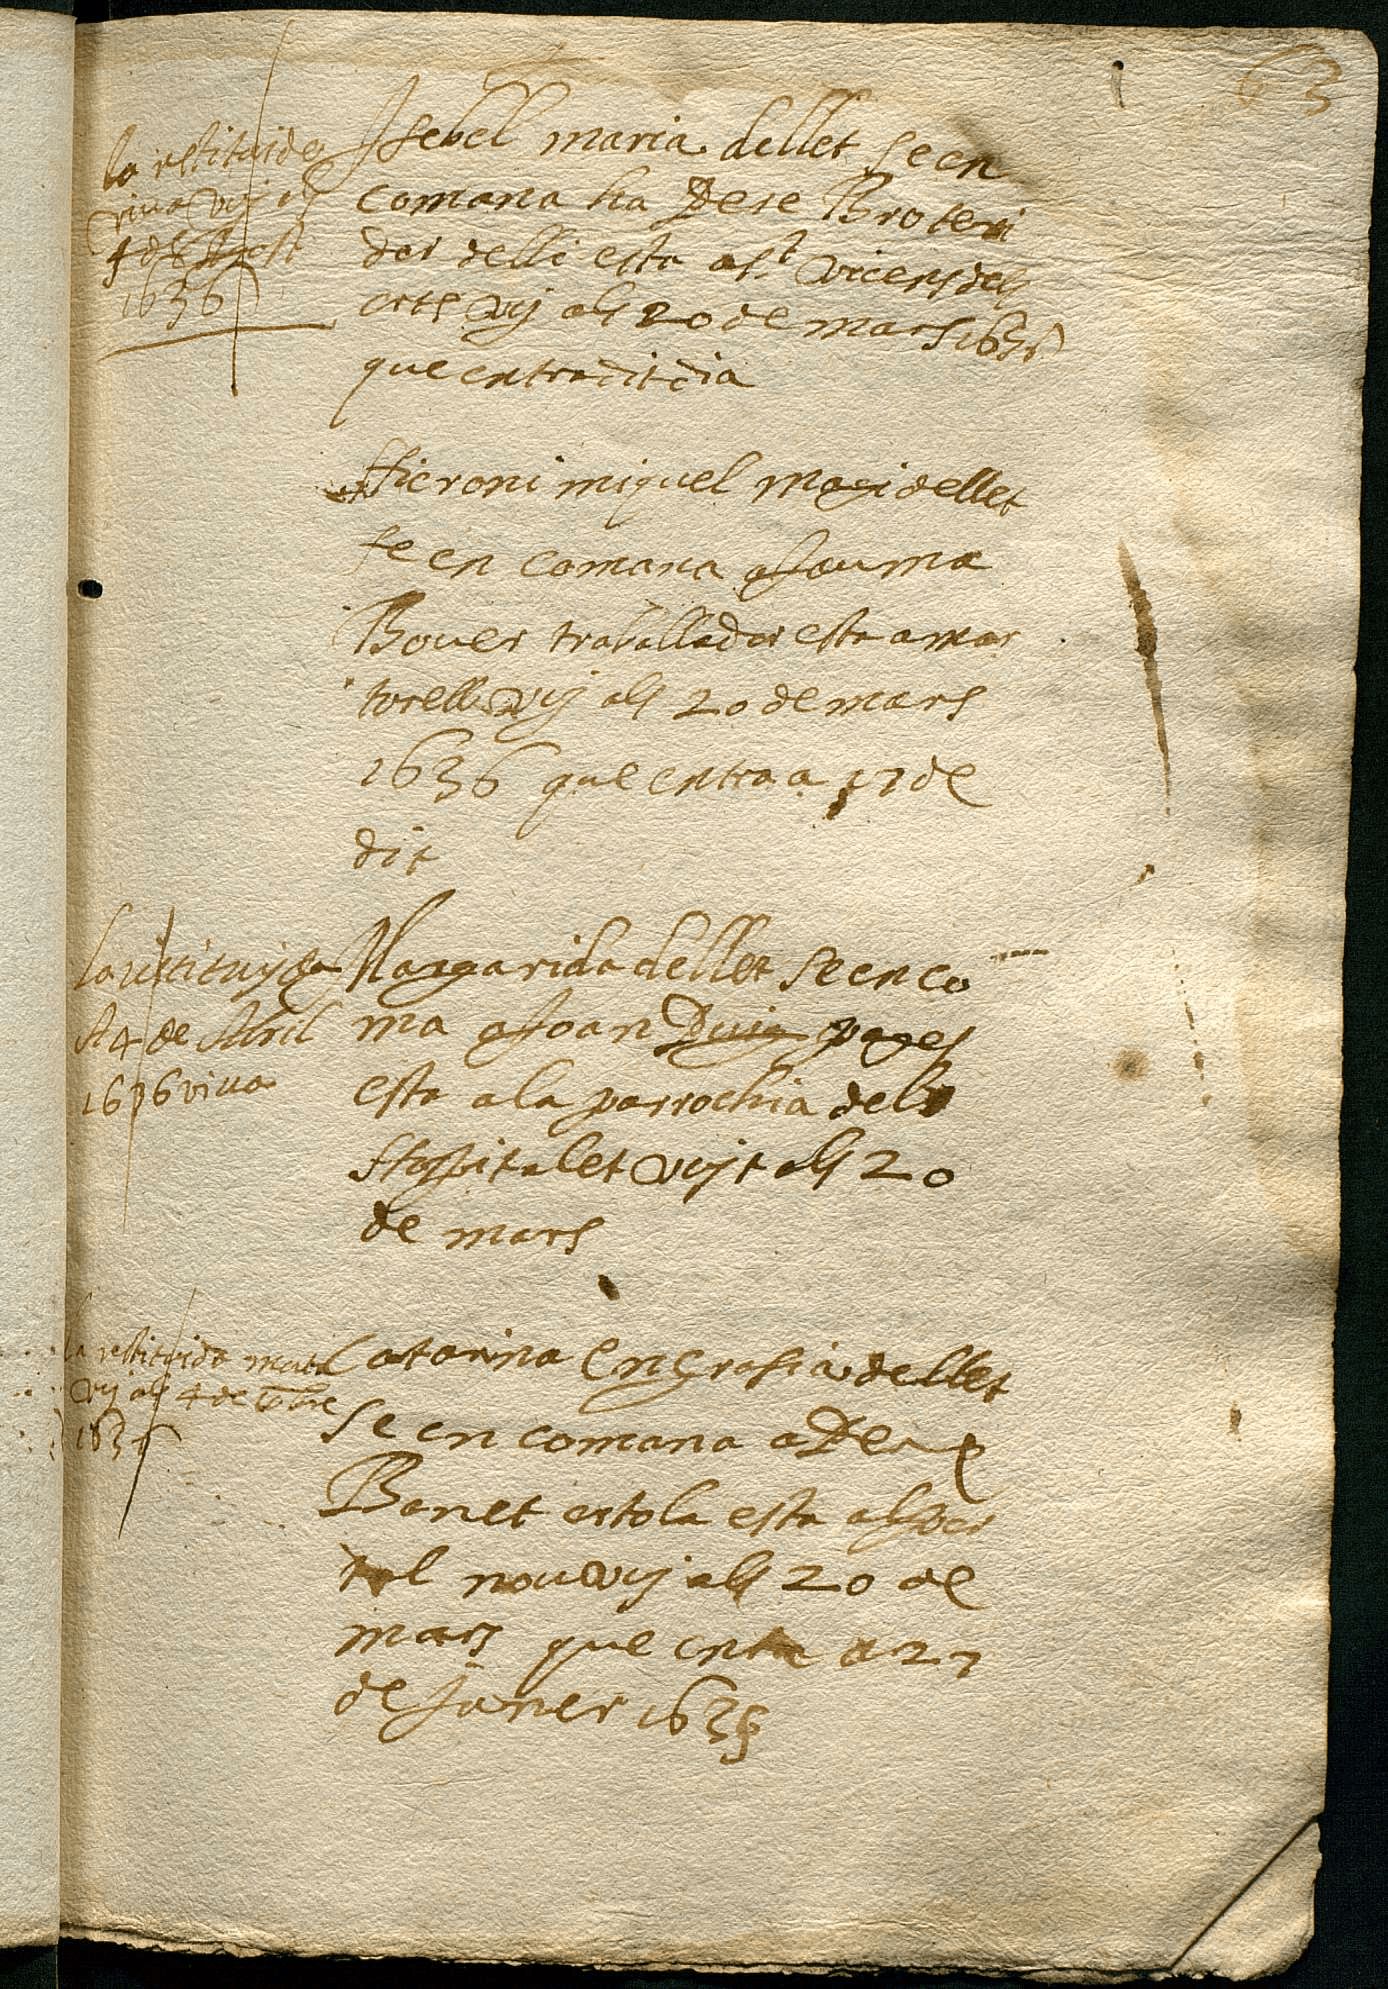 63
la restituida
viva vuy als
4 de Agost
1636
Isebel maria dellet se en
comana ha Pere Broteri
der delli esta a St vicens dels
orts vij als 20 de mars 1636
que entra dit dia
Hieroni miquel magi dellet
se en comana a Jauma
Bover traballador esta a mar
torell vij als 20 de mars
1636 que entra a 17 de
dit
la restituyda
A 4 de Abril
1636 viva
Margarida dellet se enco
ma a Joan Puig pages
esta a la parrochia del
Hospitalet vuyt als 20
de mars
la restituida morta
vij als 4 de
163
Catarina Engrasia dellet
se en comana a Pere
Bonet estola esta al por
tal nou vij als 20 de
mars que entra a 27
de Janer 1636